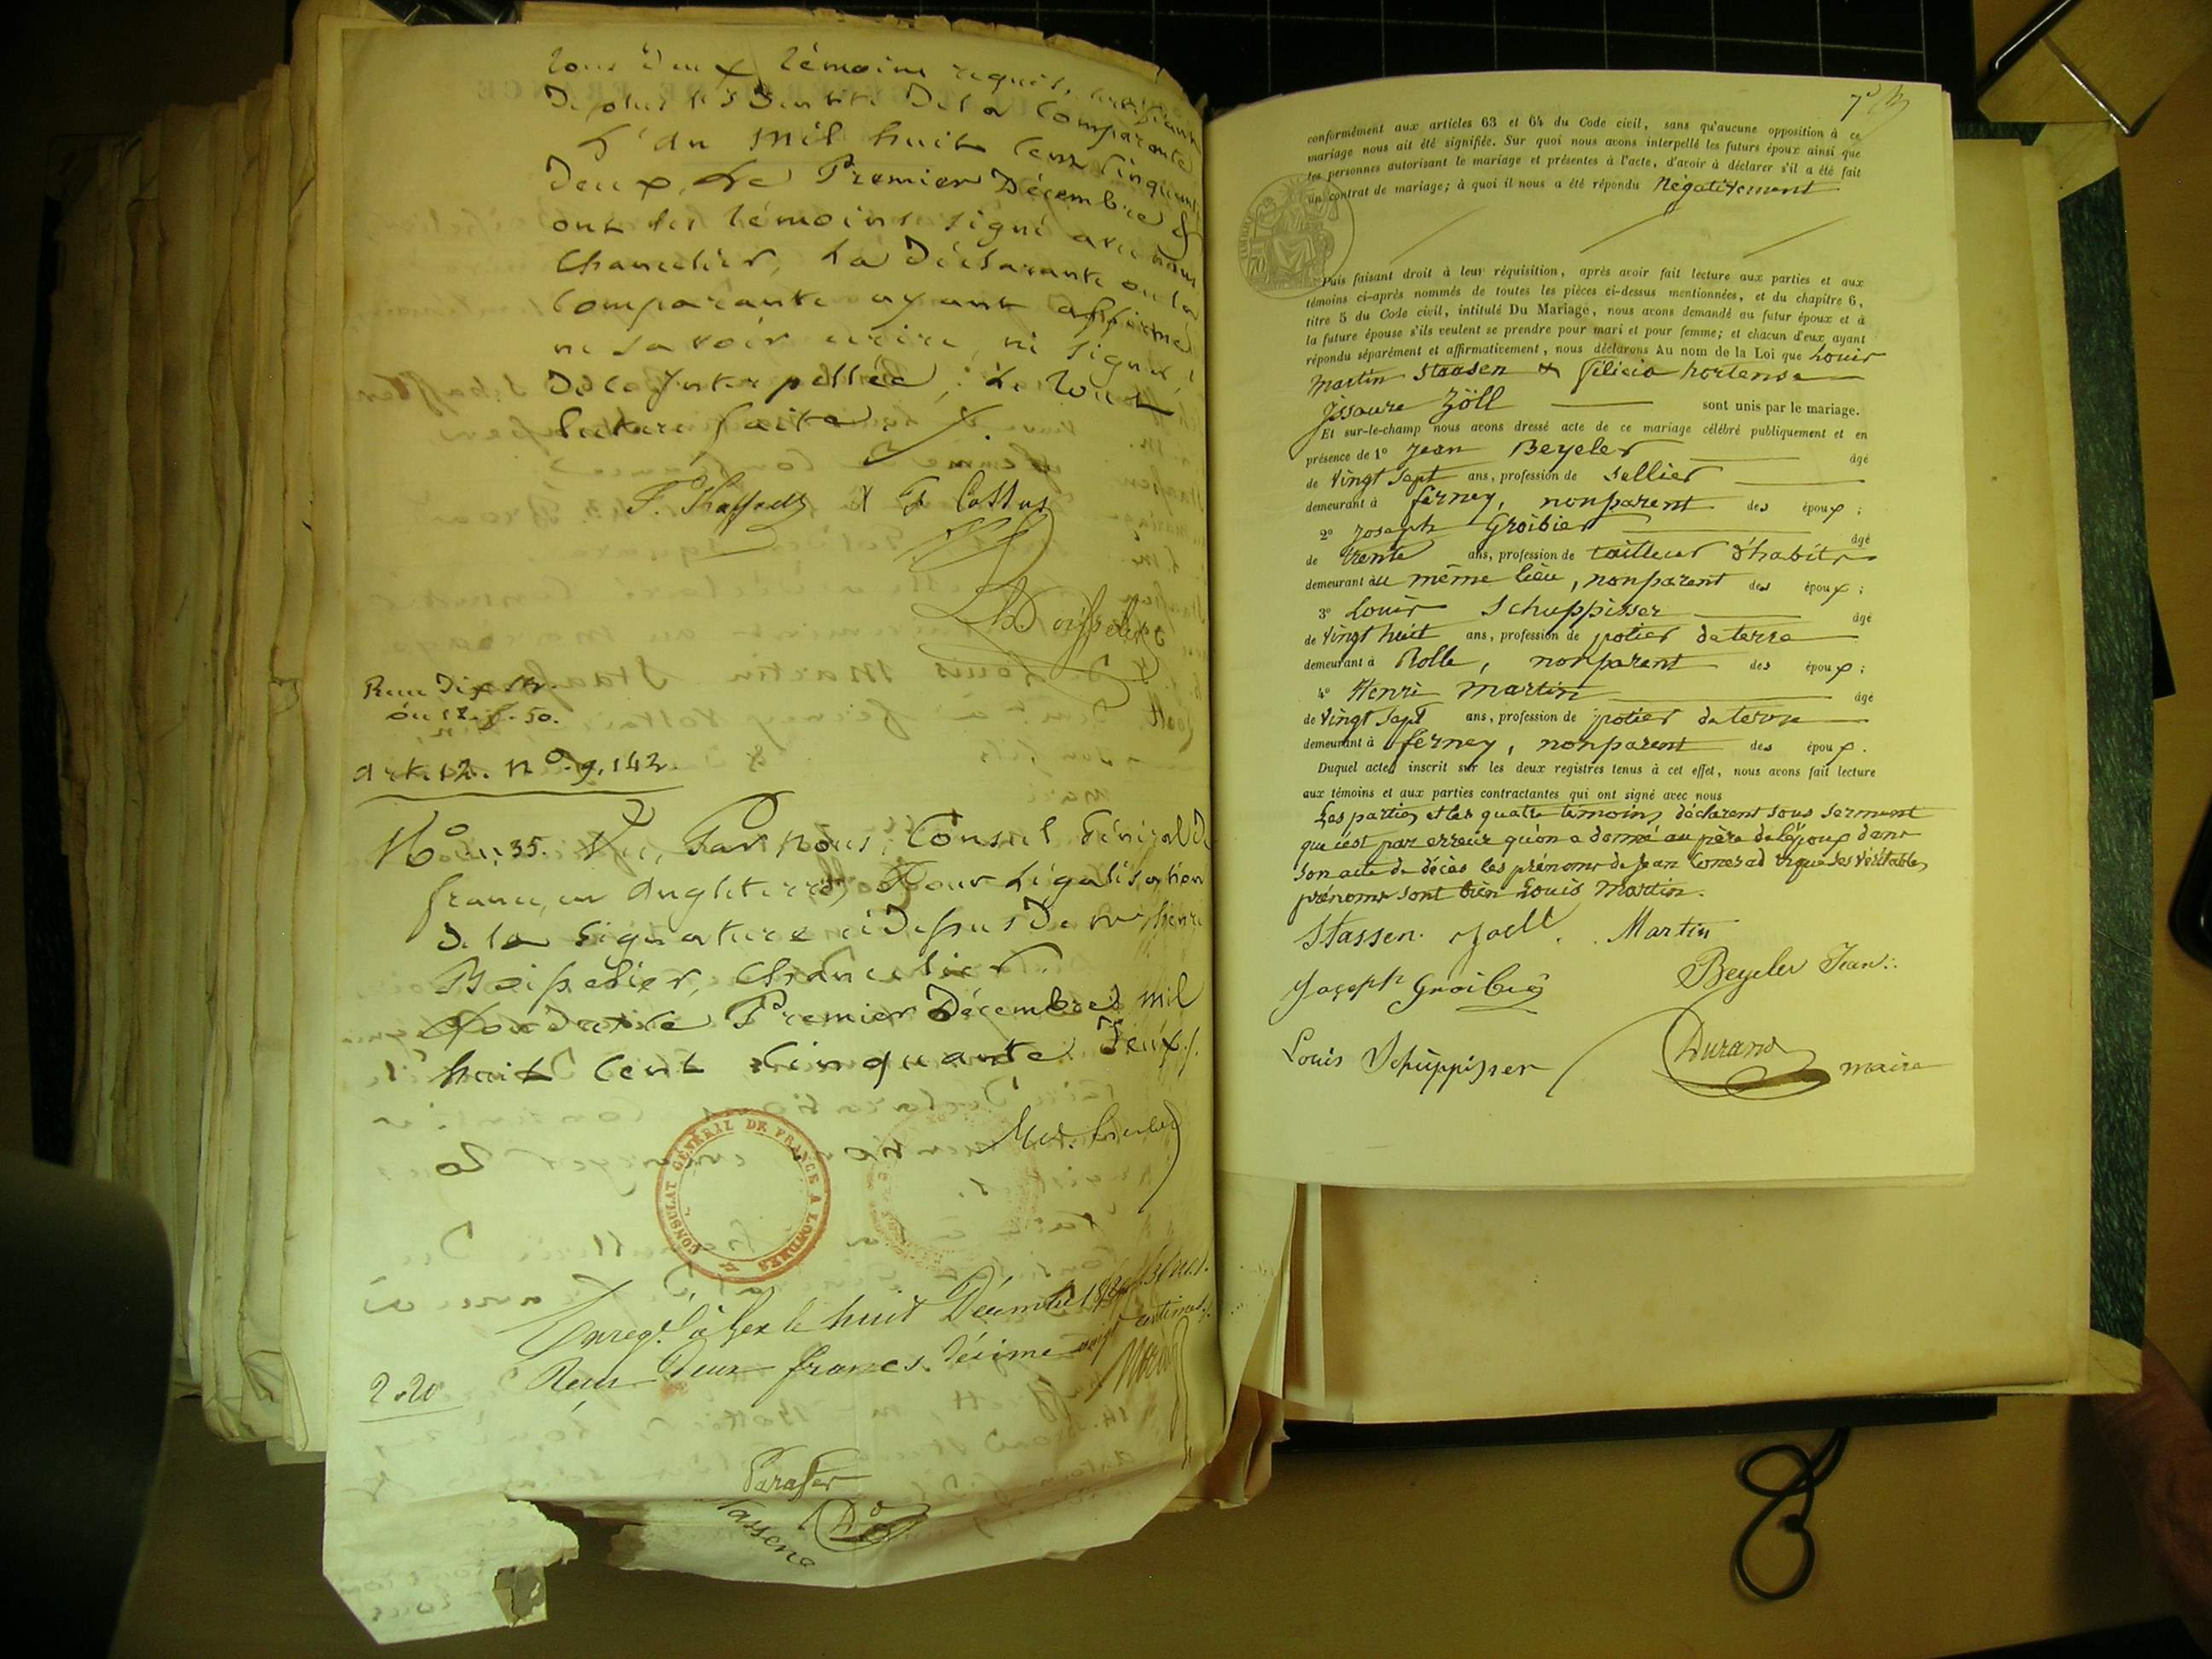 tous deux témoins requis, certifiant
de plus l'identité de la Comparante
L'an mil huit Cent Cinquante
deux, Le Premier Décembre &
ont les témoins signé avec nous
Chancelier, La Déclarante ou la
Comparante ayant affirmé
ne savoir écrire, ni signer,
de ce Interpellée, Le tout
lecture faite
Reçu dix sh.
ou 12.f.50.
Art. 12. N.º 9.142.
Nº 1,35. Vu, Par nous, Consul Général de
france, en Angleterre, Pour Légalisation
de la Signature ci Dessus de Mr henri
Chancelier.
Londres Le Premier Décembre mil
huit Cent Cinquante Deux./.
CONSULAT GÉNÉRAL DE FRANCE A LONDRES
Enregt. à Gex le huit Décembre
Reçu deux francs, décime vingt centimes
2.20
Parafer
Stassene
conformément aux articles 63 et 64 du Code civil, sans qu'aucune opposition à ce
mariage nous ait été signifiée. Sur quoi nous avons interpellé les futurs époux ainsi que
les personnes autorisant le mariage et présentes à l'acte, d'avoir à déclarer s'il a été fait
un contrat de mariage; à quoi il nous a été répondu Négativement
Puis faisant droit à leur réquisition, après avoir fait lecture aux parties et aux
témoins ci-après nommés de toutes les pièces ci-dessus mentionnées, et du chapitre 6,
titre 5 du Code civil, intitulé Du Mariage, nous avons demandé au futur époux et à
la future épouse s'ils veulent se prendre pour mari et pour femme; et chacun d'eux ayant
répondu séparément et affirmativement, nous déclarons Au nom de la Loi que Louis
Martin Staasen & Félicia hortense
Jssaure Zöll sont unis par le mariage.
Et sur-le-champ nous avons dressé acte de ce mariage célébré publiquement et en
présence de 1º Jean Beyeler âgé
de Vingt Sept ans, profession de Sellier
demeurant à ferney, non parent des époux;
2º Joseph Groibier âgé
de trente ans, profession de tailleur d'habits
demeurant au même lieu, non parent des époux;
3º Louis Schuppisser âgé
de Vingt huit ans, profession de potier de terre
demeurant à Rolle, non parent des époux;
4º Henri Martin âgé
de Vingt Sept ans, profession de potier de terre
demeurant à ferney, non parent des époux.
Duquel acte, inscrit sur les deux registres tenus à cet effet, nous avons fait lecture
aux témoins et aux parties contractantes qui ont signé avec nous
Les parties et les quatre témoins déclarent sous serment
que c'est par erreur qu'on a donné au père de l'époux dans
son acte de décès les prénoms de Jean Conrad & que ses véritables
prénoms sont bien Louis Martin.
Stassen. Zoell. Martin
Joseph Groibier Beyeler Jean
Louis Schuppisser Durand maire